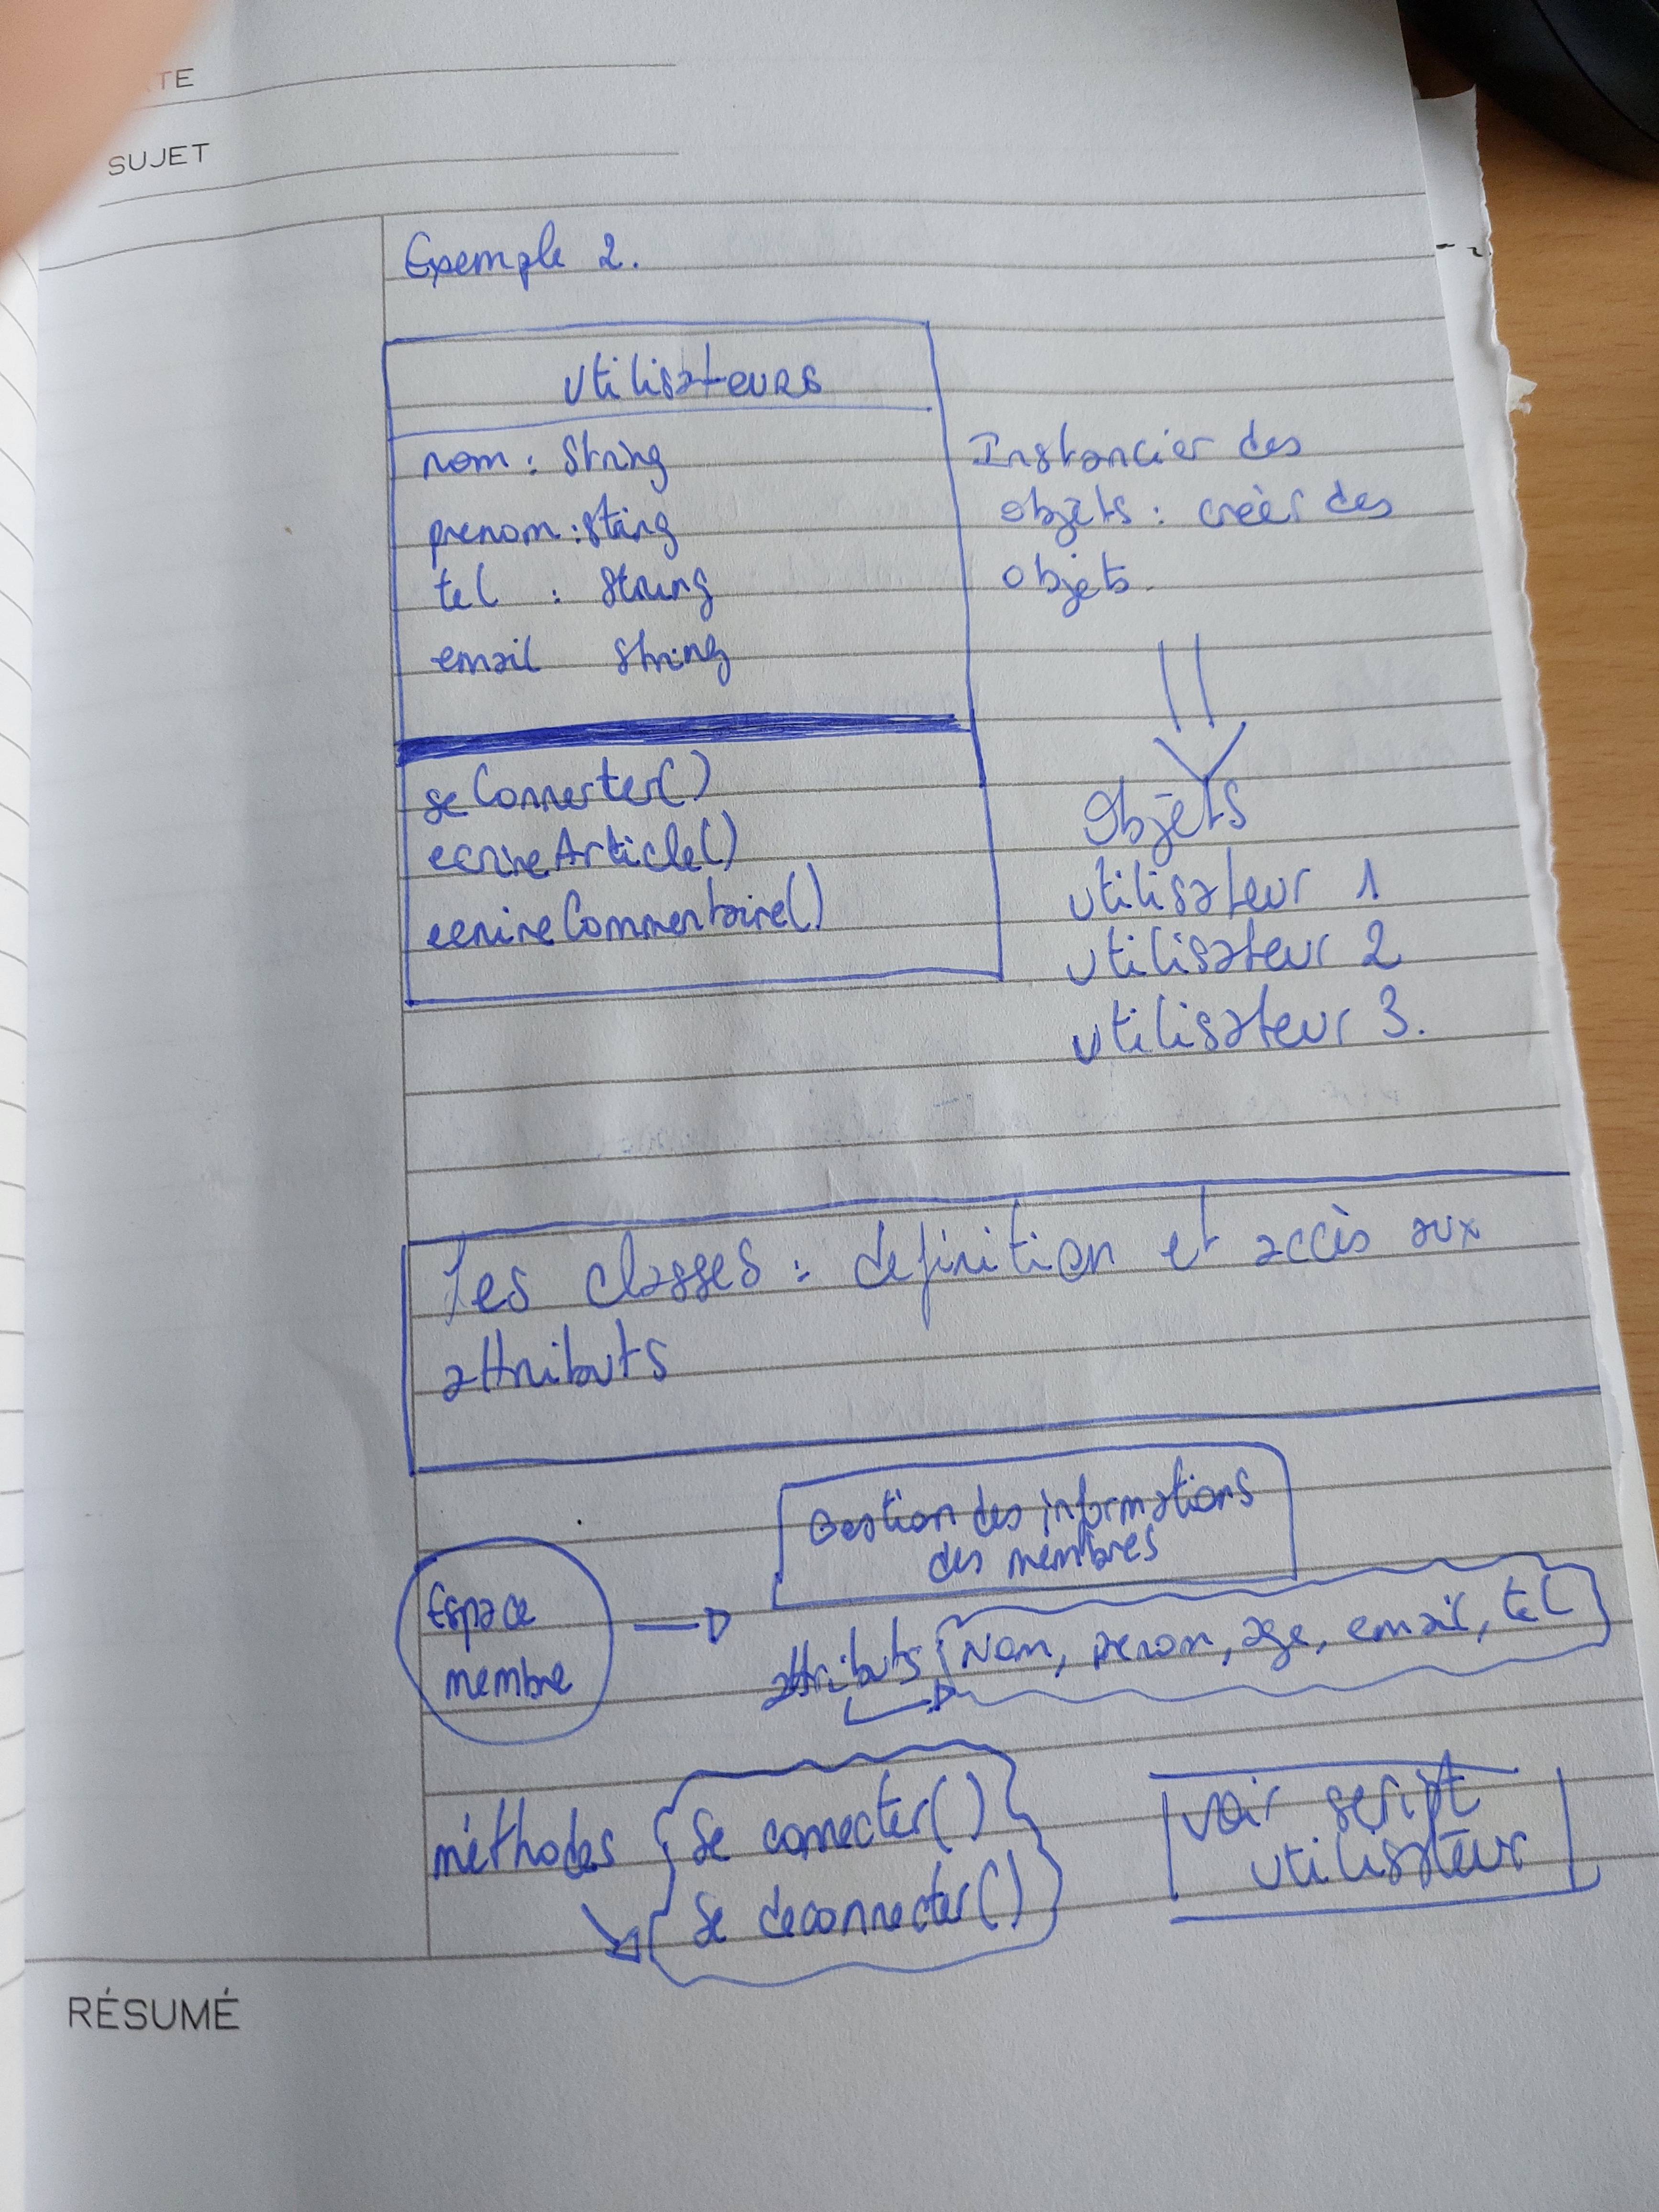 TE
SUJET
Exemple 2.
Utilisateurs
nom : String
prenom : sting
tel : String
email String
seConnecter()
ecrireArticle()
ecrireCommentaire()
Instancier des
objets : créer des
objets.
Objets
utilisateur 1
utilisateur 2
utilisateur 3.
Les classes : definition et accès aux
attributs
Espace
membre
Gestion des informations
des membres
attributs Nom, prenom, age, email, tel
méthodes
Se connecter()
Se deconnecter()
voir script
utilisateur
RÉSUMÉ